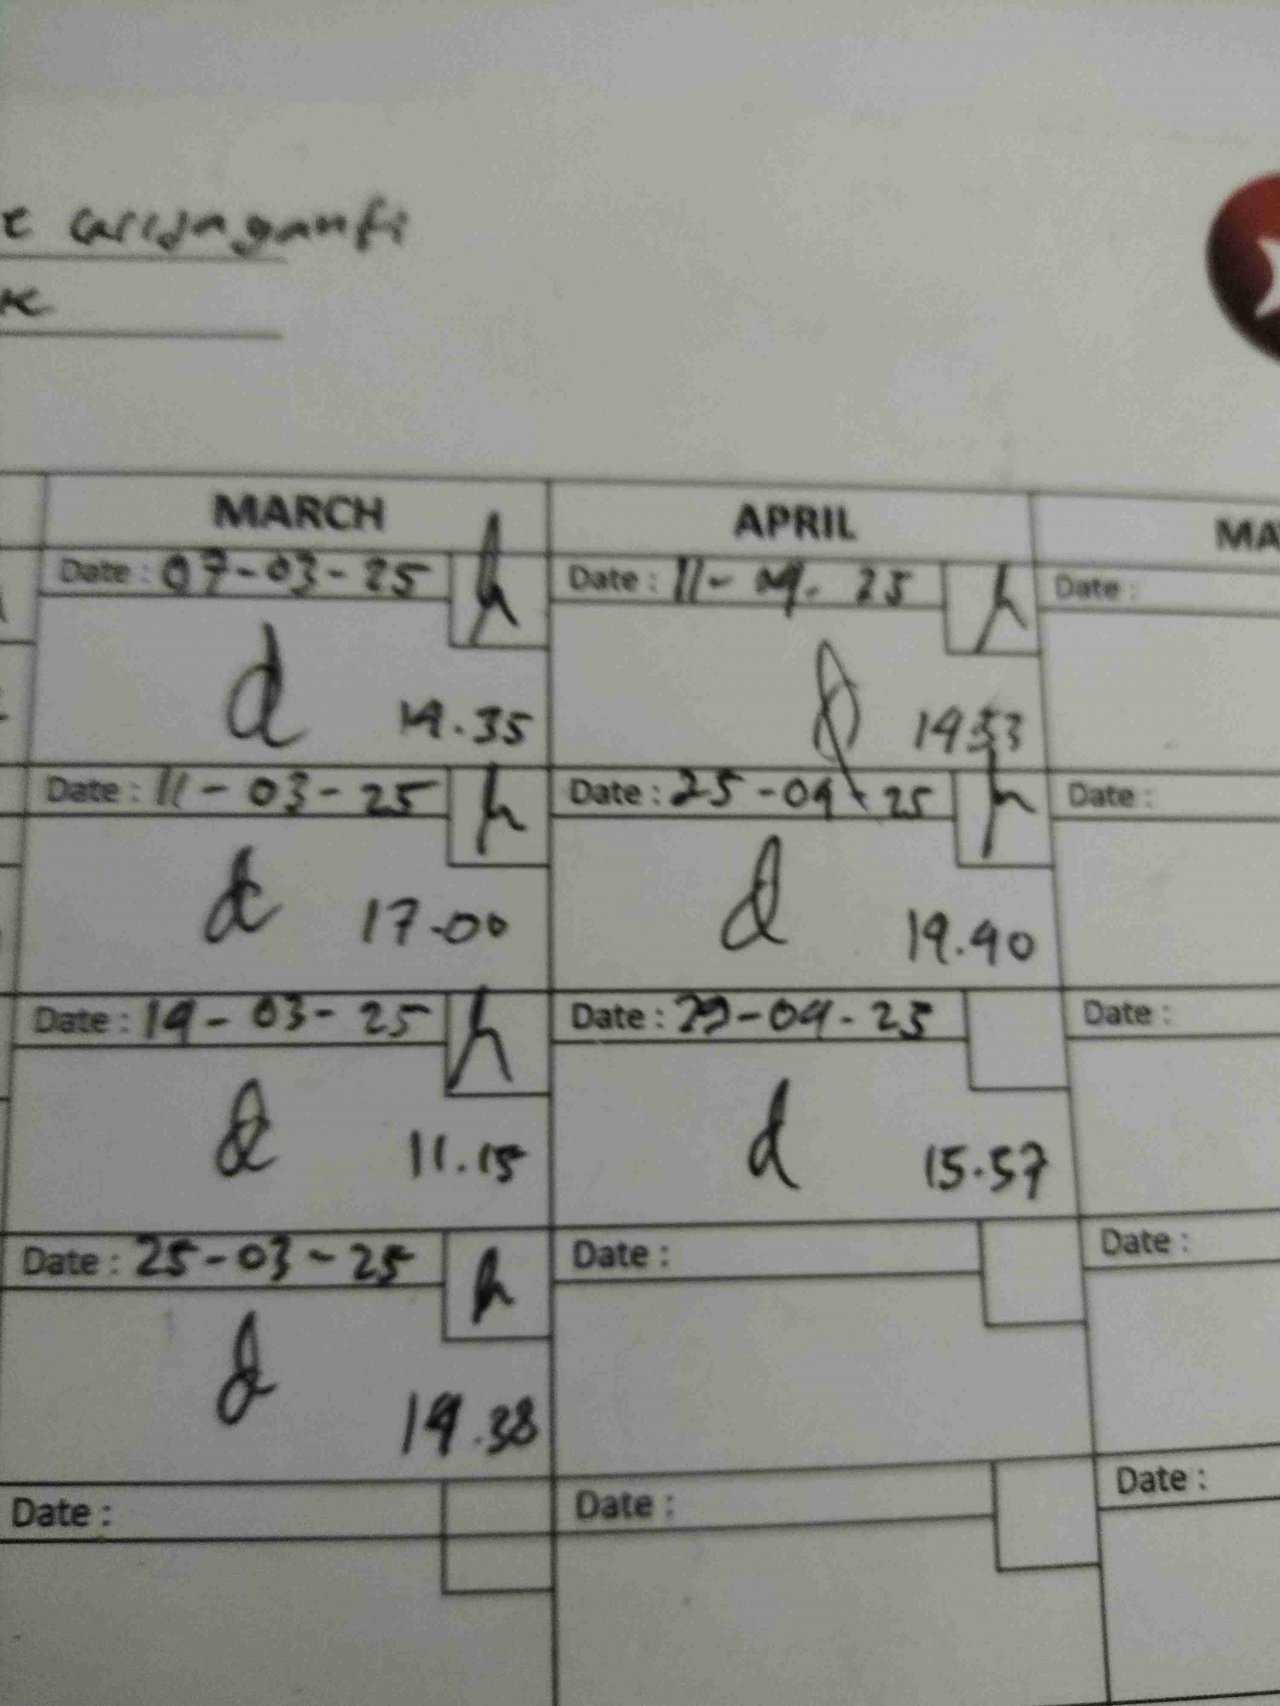 MARCH APRIL
Date : 07-03-25 Date : 11-04-25 Date :
14.35 1453
Date : 11-03-25 Date : 25-04-25 Date :
17.00 14.40
Date : 14-03-25 Date : 29-04-25 Date :
11.15 15.57
Date : 25-03-25 Date : Date :
14.38
Date : Date : Date :